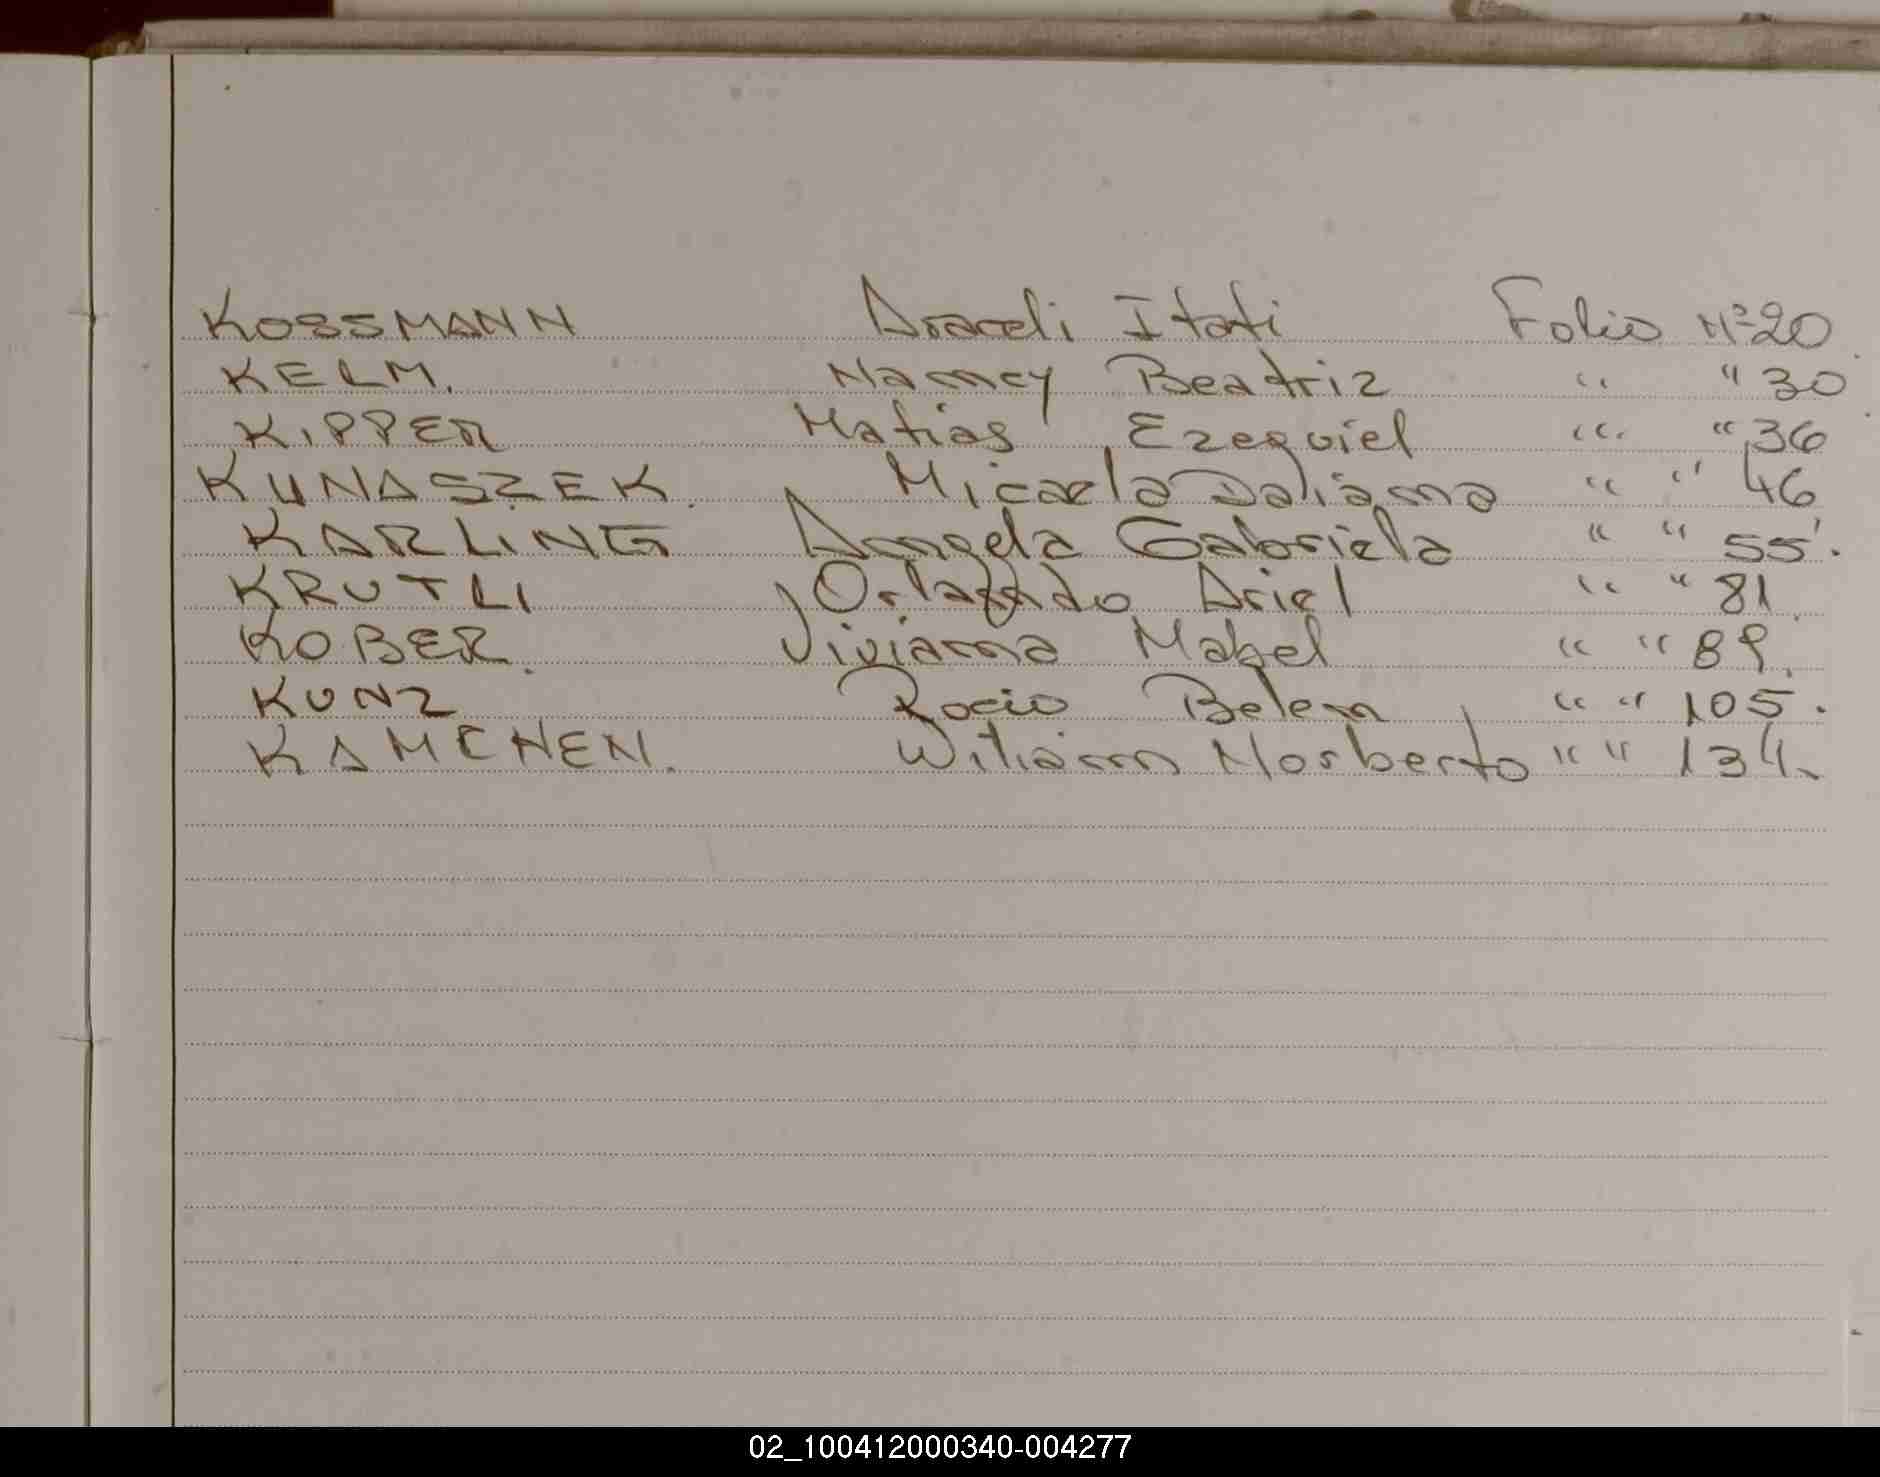 KOSSMANN Araceli Itati Folio Nº 20
KELM. Nancy Beatriz " " 30
KIPPER Matias Ezequiel " " 36
KUNASZEK. Micaela Daliana " " 46
KARLING Angela Gabriela " " 55.
KRUTLI Orlando Ariel " " 81
KOBER. Viviana Mabel " " 89.
KUNZ Rocio Belen " " 105.
KAMCHEN. Wiliam Norberto " " 134.
02_100412000340-004277